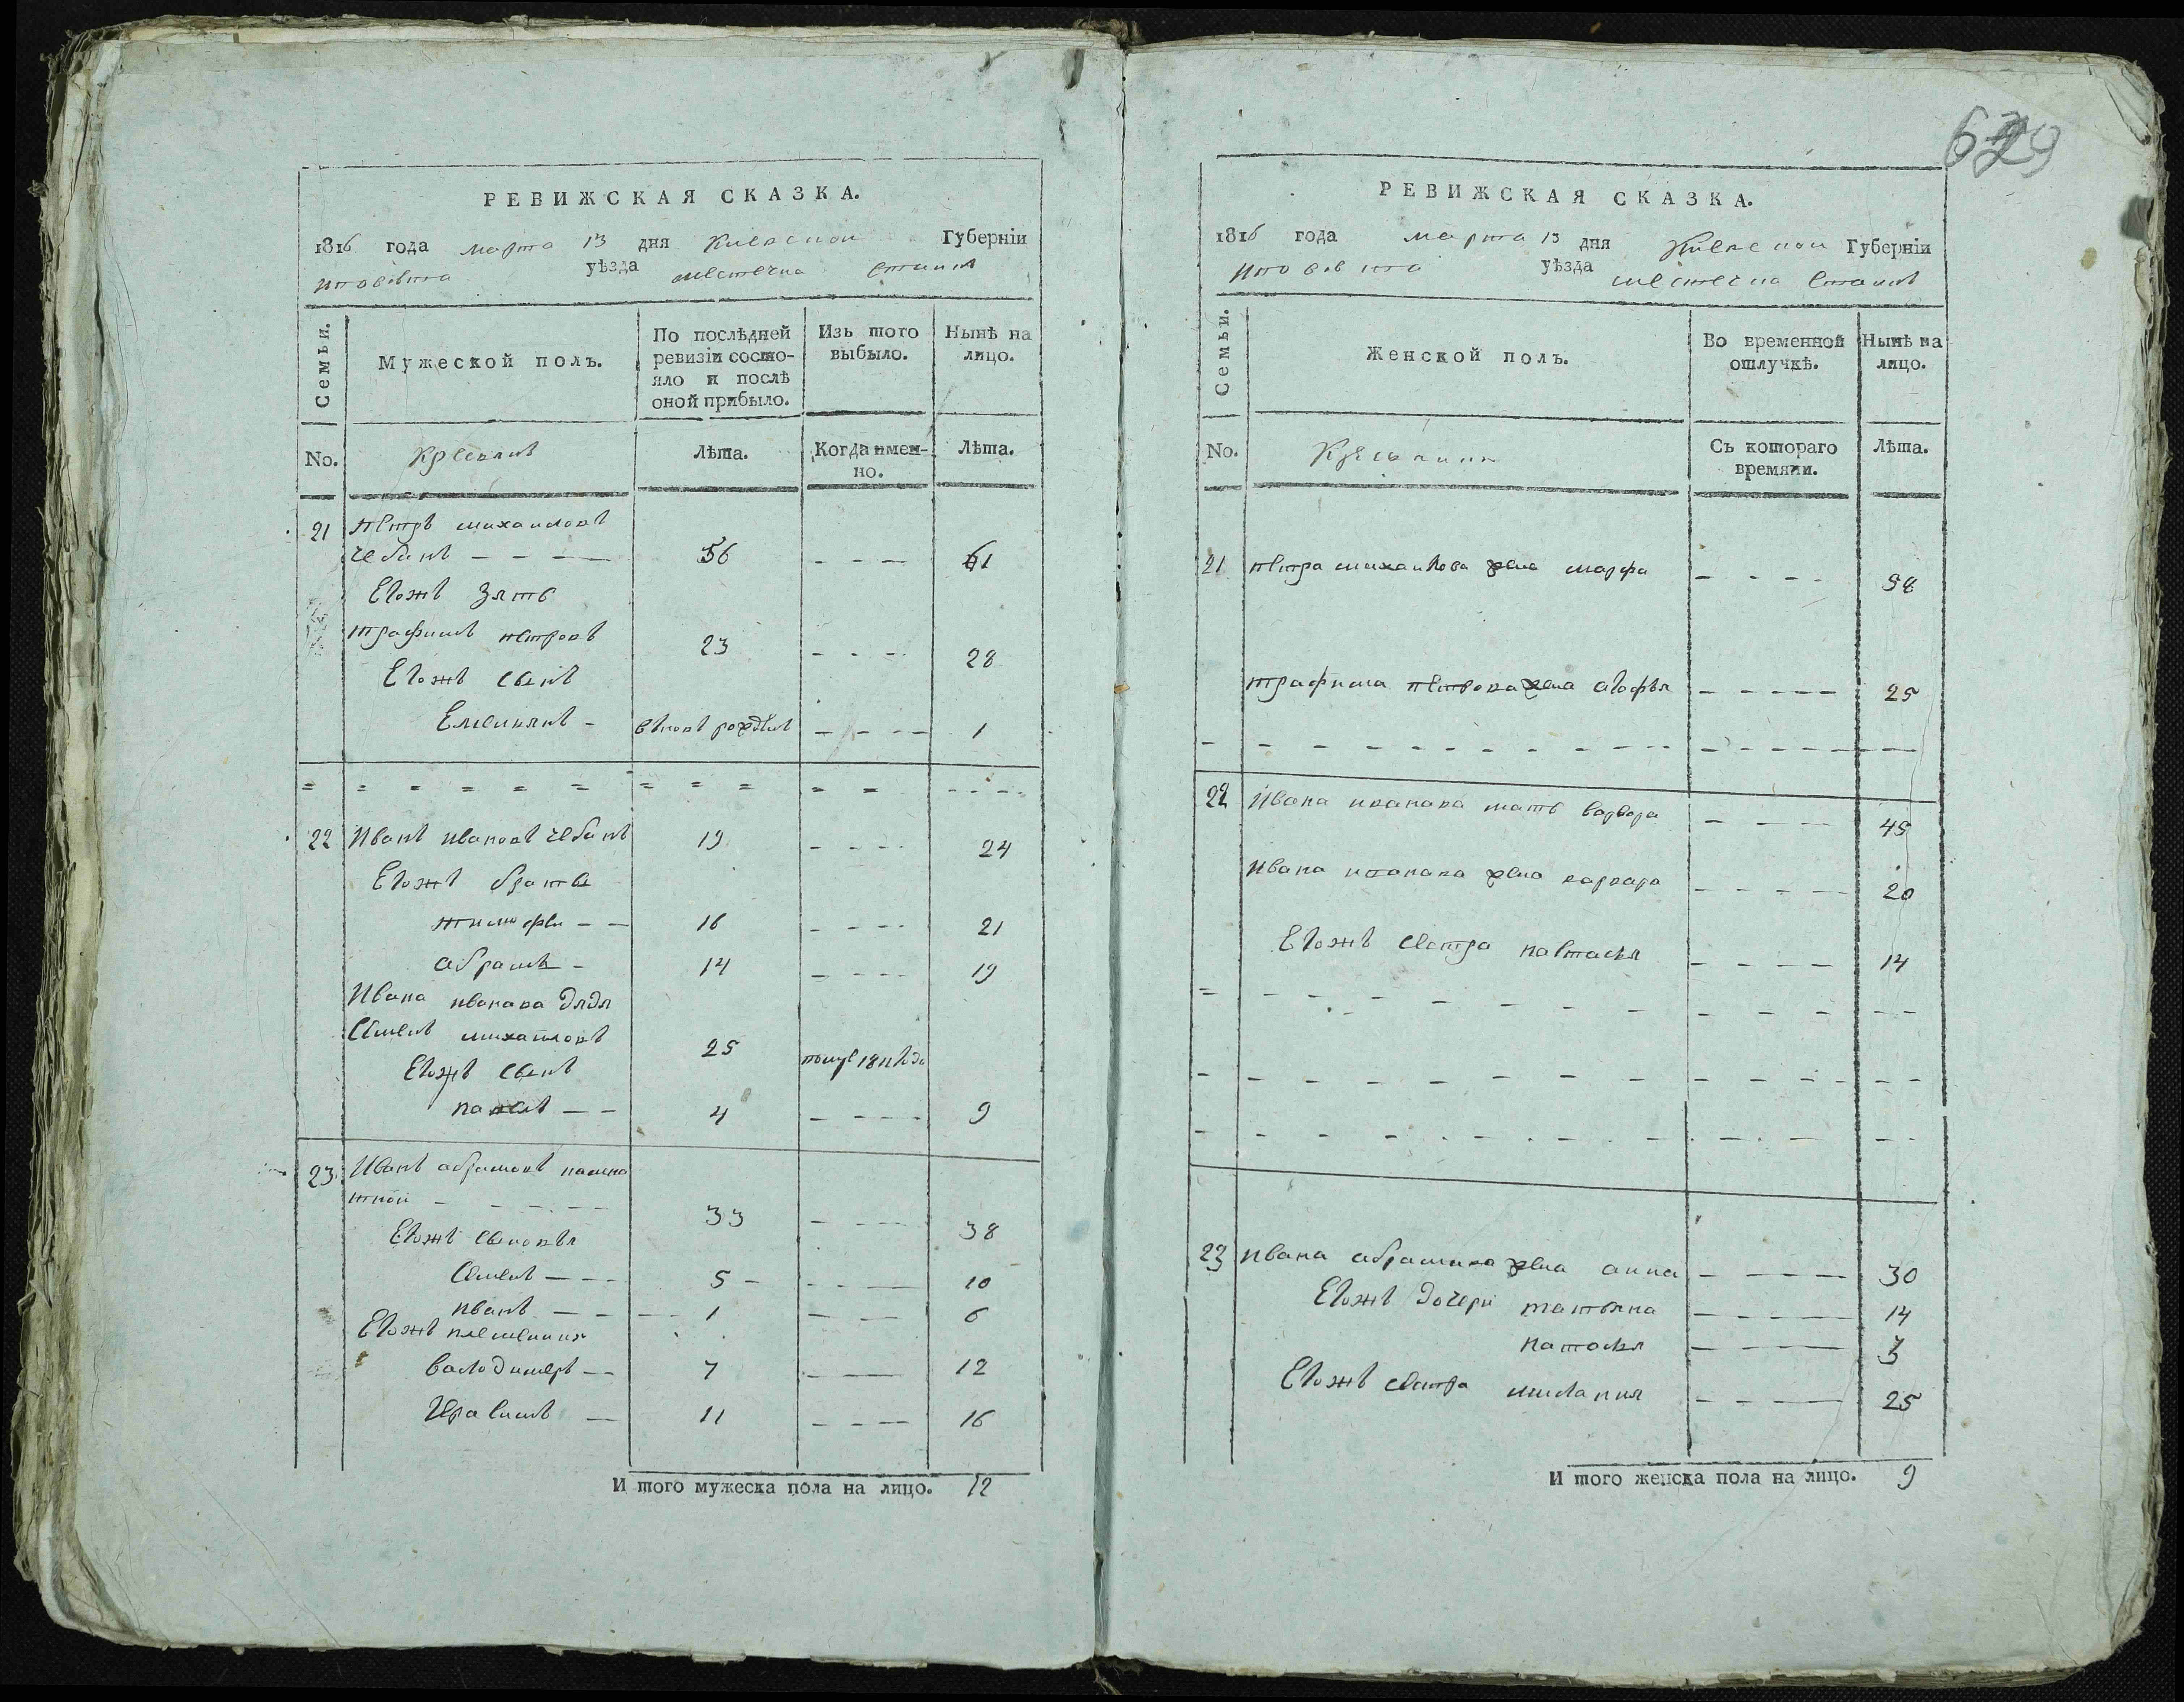 629
РЕВИЖСКАЯ СКАЗКА.
1816 года марта 13 дня Киевской Губерніи
уѣзда местечка
Семьи.
Мужеской полъ.
По послѣдней ревизіи состояло и послѣ оной прибыло.
Изъ того выбыло.
Нынѣ на лицо.
No.
Лѣта.
Когда именно.
Лѣта.
21 петръ михаиловъ
чебанъ — — — 56 — — — 61
Егожъ зять
трафимъ петровъ 23 — — — 28
Егожъ сынъ
Емельянъ — вновъ рожденъ — — — 1
22 Иванъ ивановъ чебанъ 19 — — — 24
Егожъ брата
тимофеи — — 16 — — — 21
абрамъ — 14 — — — 19
Ивана иванава дядя
Семенъ михаиловъ 25 1811 года
Егожъ сынъ
— — 4 — — — 9
23 Иванъ абрамовъ
33 — — — 38
Егожъ сыновья
Семенъ — — 5 — — — 10
иванъ — — 1 — — 6
Егожъ племянники
валодимеръ — 7 — — 12
Герасимъ — 11 — — — 16
И того мужеска пола на лицо. 12
РЕВИЖСКАЯ СКАЗКА.
1816 года марта 13 дня Киевской Губерніи
уѣзда местечка
Семьи.
Женской полъ.
Во временной отлучкѣ.
Нынѣ на лицо.
No.
Съ котораго времяни.
Лѣта.
21 петра михаилова жена марфа — — — 58
трафима петрова жена агофья — — — 25
22 Ивана иванава мать варвара — — — 45
Ивана иванава жена варвара — — — 20
Егожъ сестра настасья — — — 14
23 ивана абрамова жена анна — — — 30
Егожъ дочери татьяна — — — 14
настасья — — — 3
Егожъ сестра милания — — — 25
И того женска пола на лицо. 9